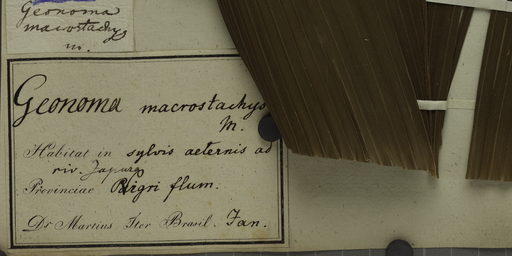 Geonoma
macrostachys
m.
Geonoma macrostachys
M.
Habitat in sylvis aeternis ad
riv. Japura
Provinciae Nigri flum.
Dr Martius Iter Brasil. Jan.